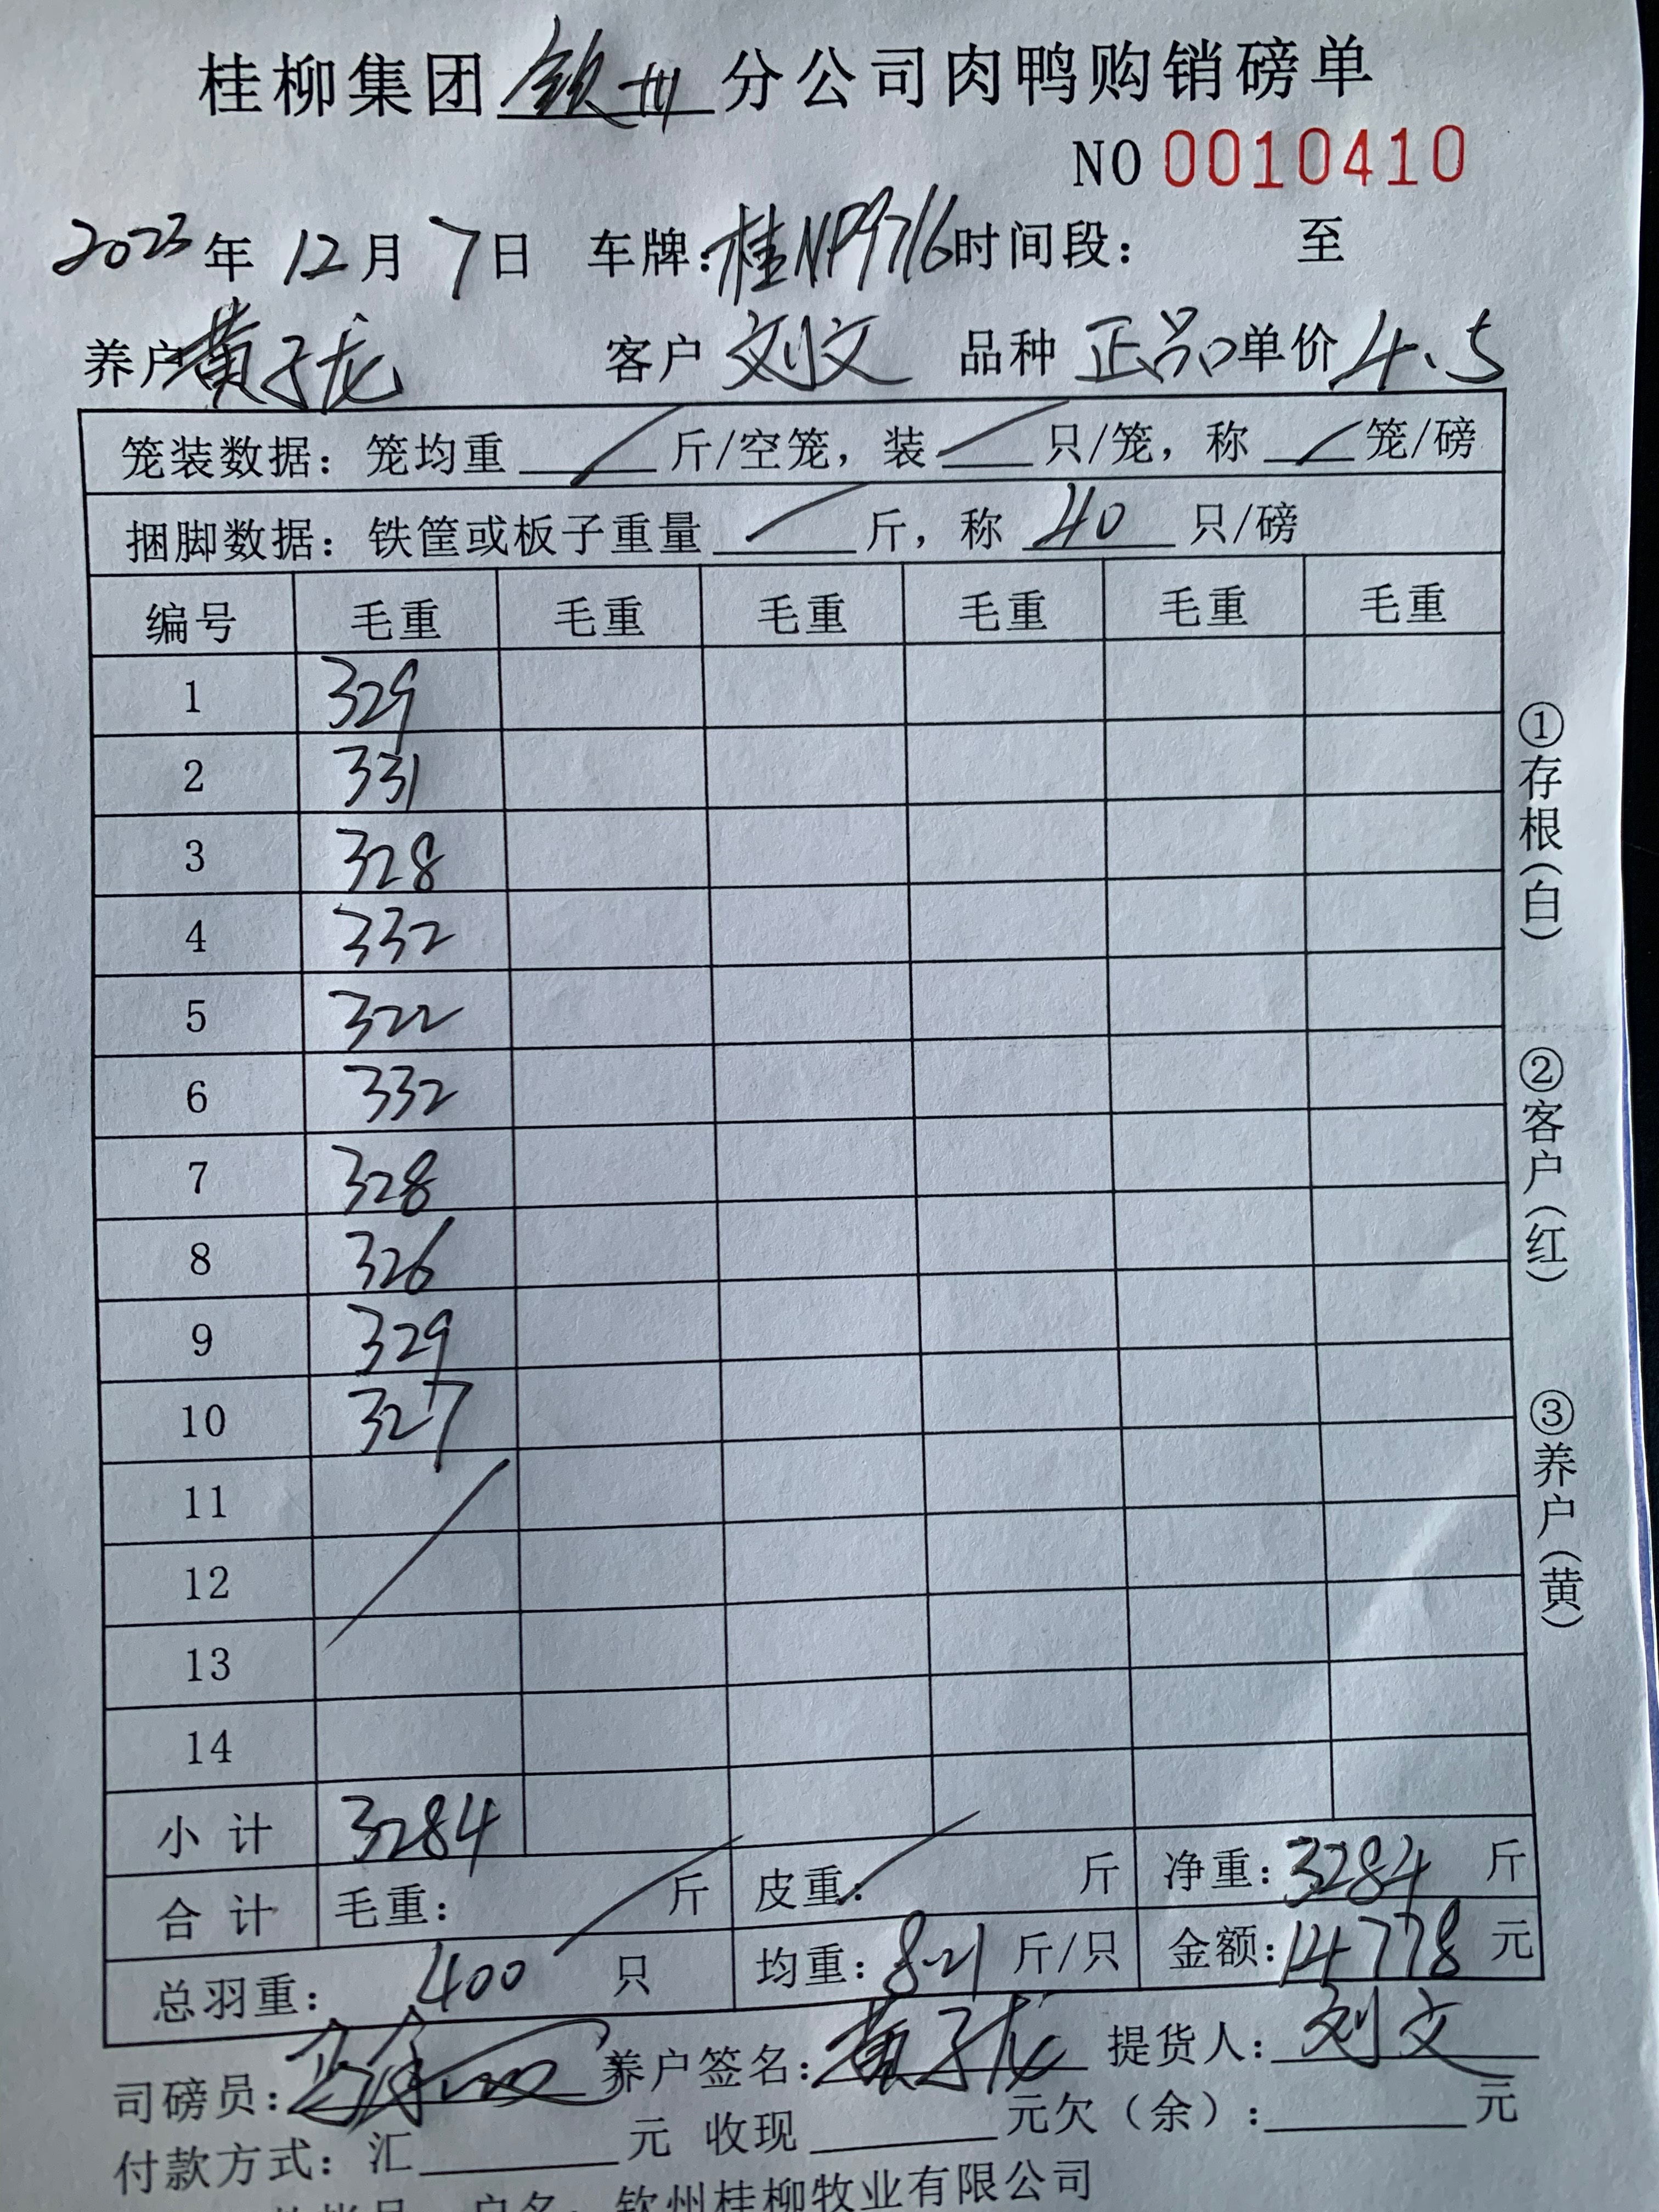 桂柳集团钦州分公司肉鸭购销磅单
NO 0010410
2023年12月7日 车牌:桂NP9716时间段: 至
养户黄子龙 客户 刘文 品种 正品 单价4.5
笼装数据: 笼均重 / 斤/空笼, 装 / 只/笼, 称 / 笼/磅
捆脚数据: 铁筐或板子重量 / 斤, 称 40 只/磅
编号 毛重 毛重 毛重 毛重 毛重 毛重
1 329
2 331
3 328
4 332
5 322
6 332
7 328
8 326
9 329
10 327
11
12
13
14
小计 3284
合计 毛重: / 斤 皮重: / 斤 净重:3284 斤
总羽重: 400 只 均重:8.21 斤/只 金额:14778 元
司磅员: 养户签名:黄子龙 提货人:刘文
付款方式: 汇 元 收现 元欠(余): 元
户名: 钦州桂柳牧业有限公司
①存根(白)
②客户(红)
③养户(黄)